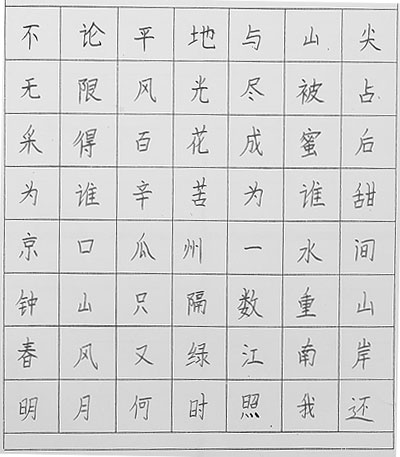 不论平地与山尖
无限风光尽被占
采得百花成蜜后
为谁辛苦为谁甜
京口瓜州一水间
钟山只隔数重山
春风又绿江南岸
明月何时照我还